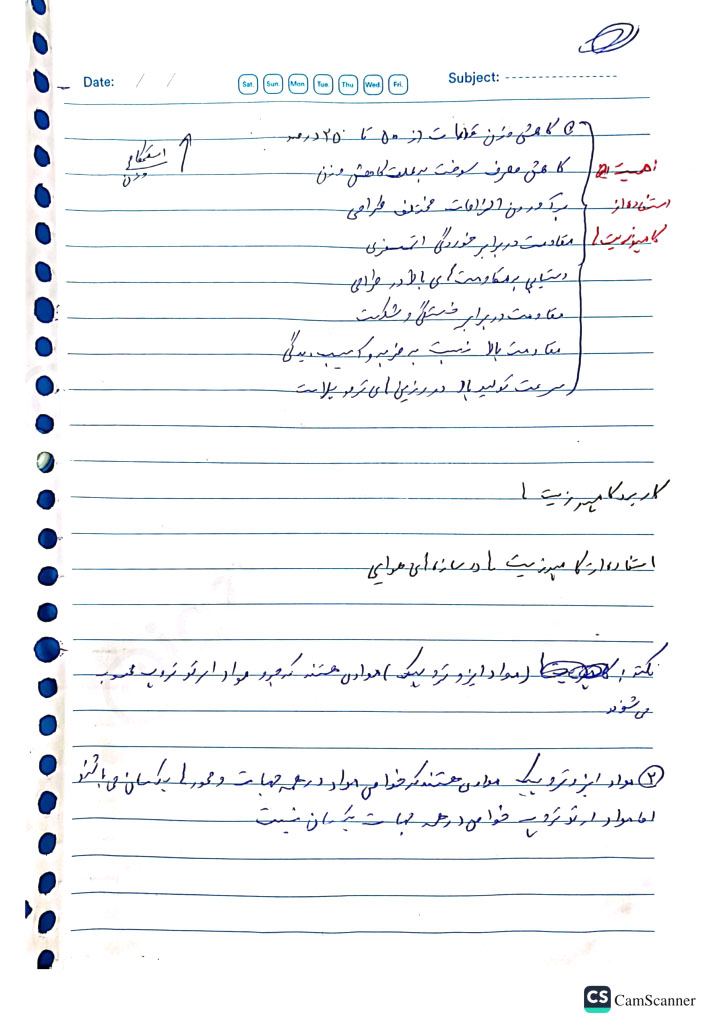 Date: / /
Sat. Sun. Mon. Tue. Thu. Wed. Fri.
Subject:
اهمیت
استفاده از
کامپوزیت ها
کاهش وزن قطعات از ۵۰ تا ۲۵ درصد
کاهش مصرف سوخت به علت کاهش وزن
برآوردن الزامات مختلف طراحی
مقاومت در برابر خوردگی اتمسفری
دستیابی به مقاومت های بالا در طراحی
مقاومت در برابر خستگی و شکست
مقاومت بالا نسبت به ضربه و آسیب دیدگی
سرعت تولید بالا در رزین های ترموپلاست
استحکام
وزن
کاربرد کامپوزیت ها
استفاده از کامپوزیت ها در سازه های هوایی
نکته: (مواد ایزوتروپیک) موادی هستند که جزو مواد ارتوتروپ محسوب
می شوند
۲ مواد ایزوتروپیک موادی هستند که خواص مواد در همه جهات و محورها یکسان می باشند
اما مواد ارتوتروپ خواص در همه جهات یکسان نیست
CS CamScanner